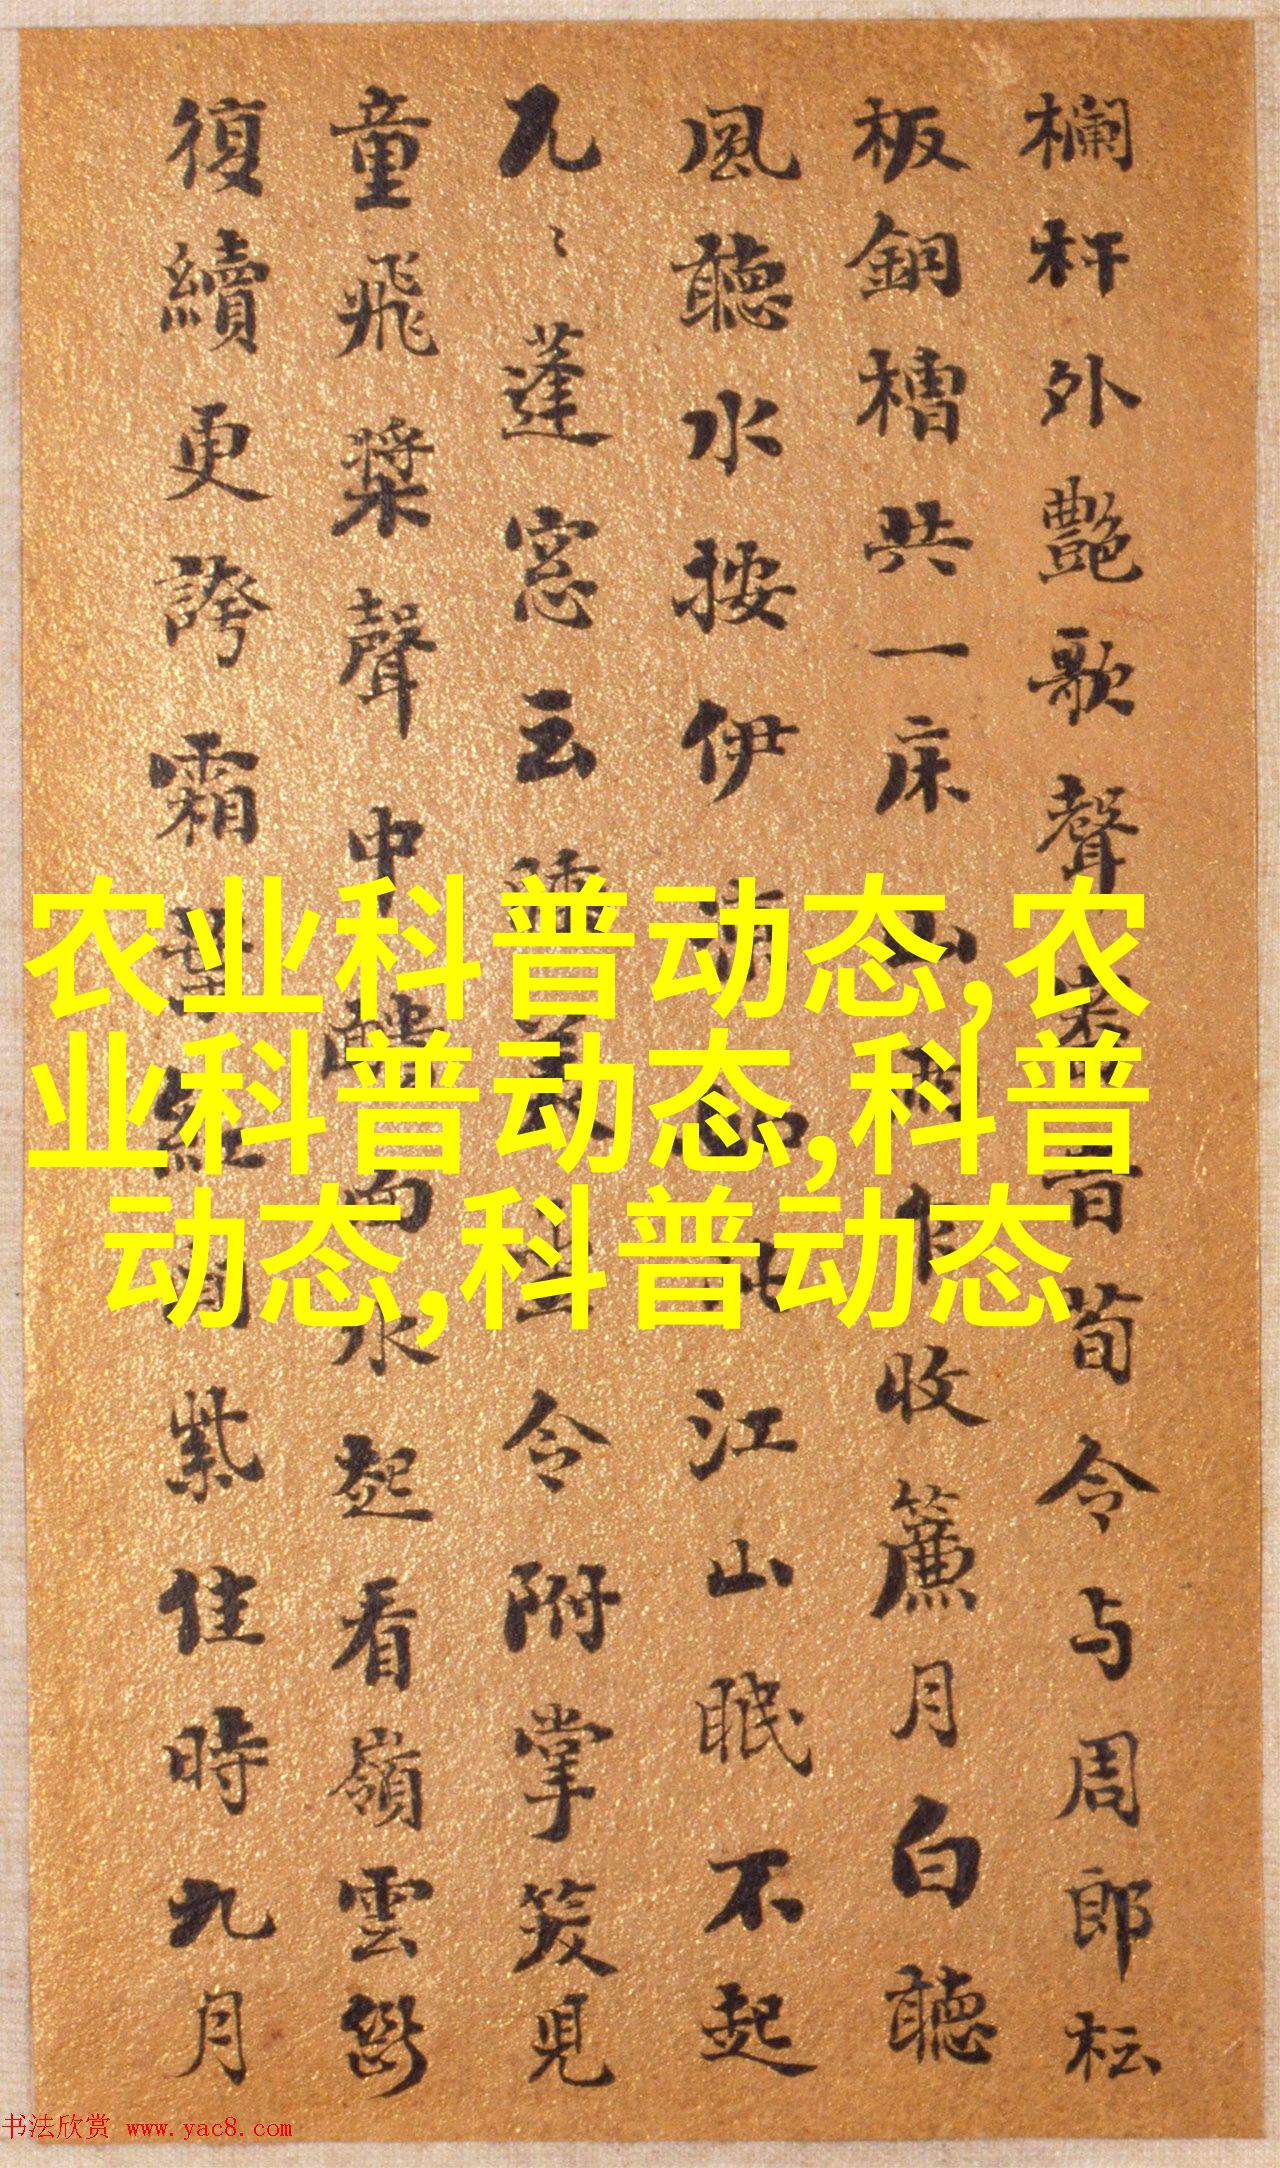 欄杆外艷歌聲昔荀令与周郎枟
板銅槽共一床山雨作收簾月白聽
風聽水按伊涼如此江山眠不起
凡〻蓬窓云睡美坐令附掌笑見
童飛槳聲中水起看嶺雲
復續更誇霜葉紅間紫佳時九月
农业科普动态,农
业科普动态,科普
动态,科普动态
书法欣赏 www.yac8.com